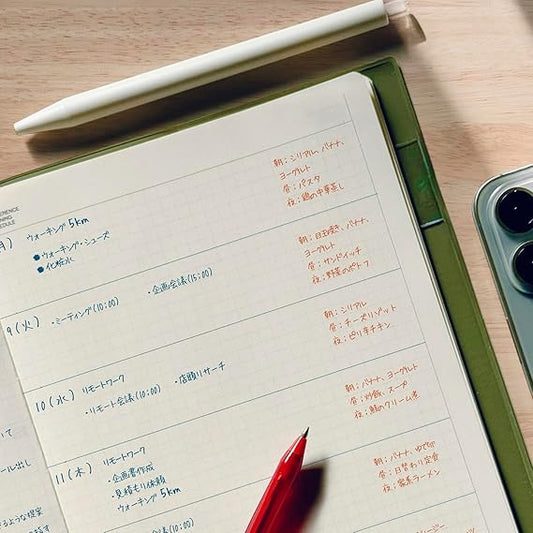 ウォーキング 5km
●ウォーキング・シューズ
●化粧水
朝:シリアル、バナナ、
ヨーグルト
昼:パスタ
夜:鶏の中華蒸し
9(火)
・ミーティング(10:00)
・企画会議(15:00)
朝:目玉焼き、バナナ、
ヨーグルト
昼:サンドイッチ
夜:野菜のポトフ
10(水)
リモートワーク
・リモート会議(10:00)
・店頭リサーチ
朝:シリアル
昼:チーズリゾット
夜:ピリ辛チキン
11(木)
リモートワーク
・企画書作成
・見積もり依頼
ウォーキング 5km
朝:バナナ、ヨーグルト
昼:炒飯、スープ
夜:鮭のクリーム煮
朝:バナナ、ゆで卵
昼:日替わり定食
夜:家系ラーメン
(10:00)